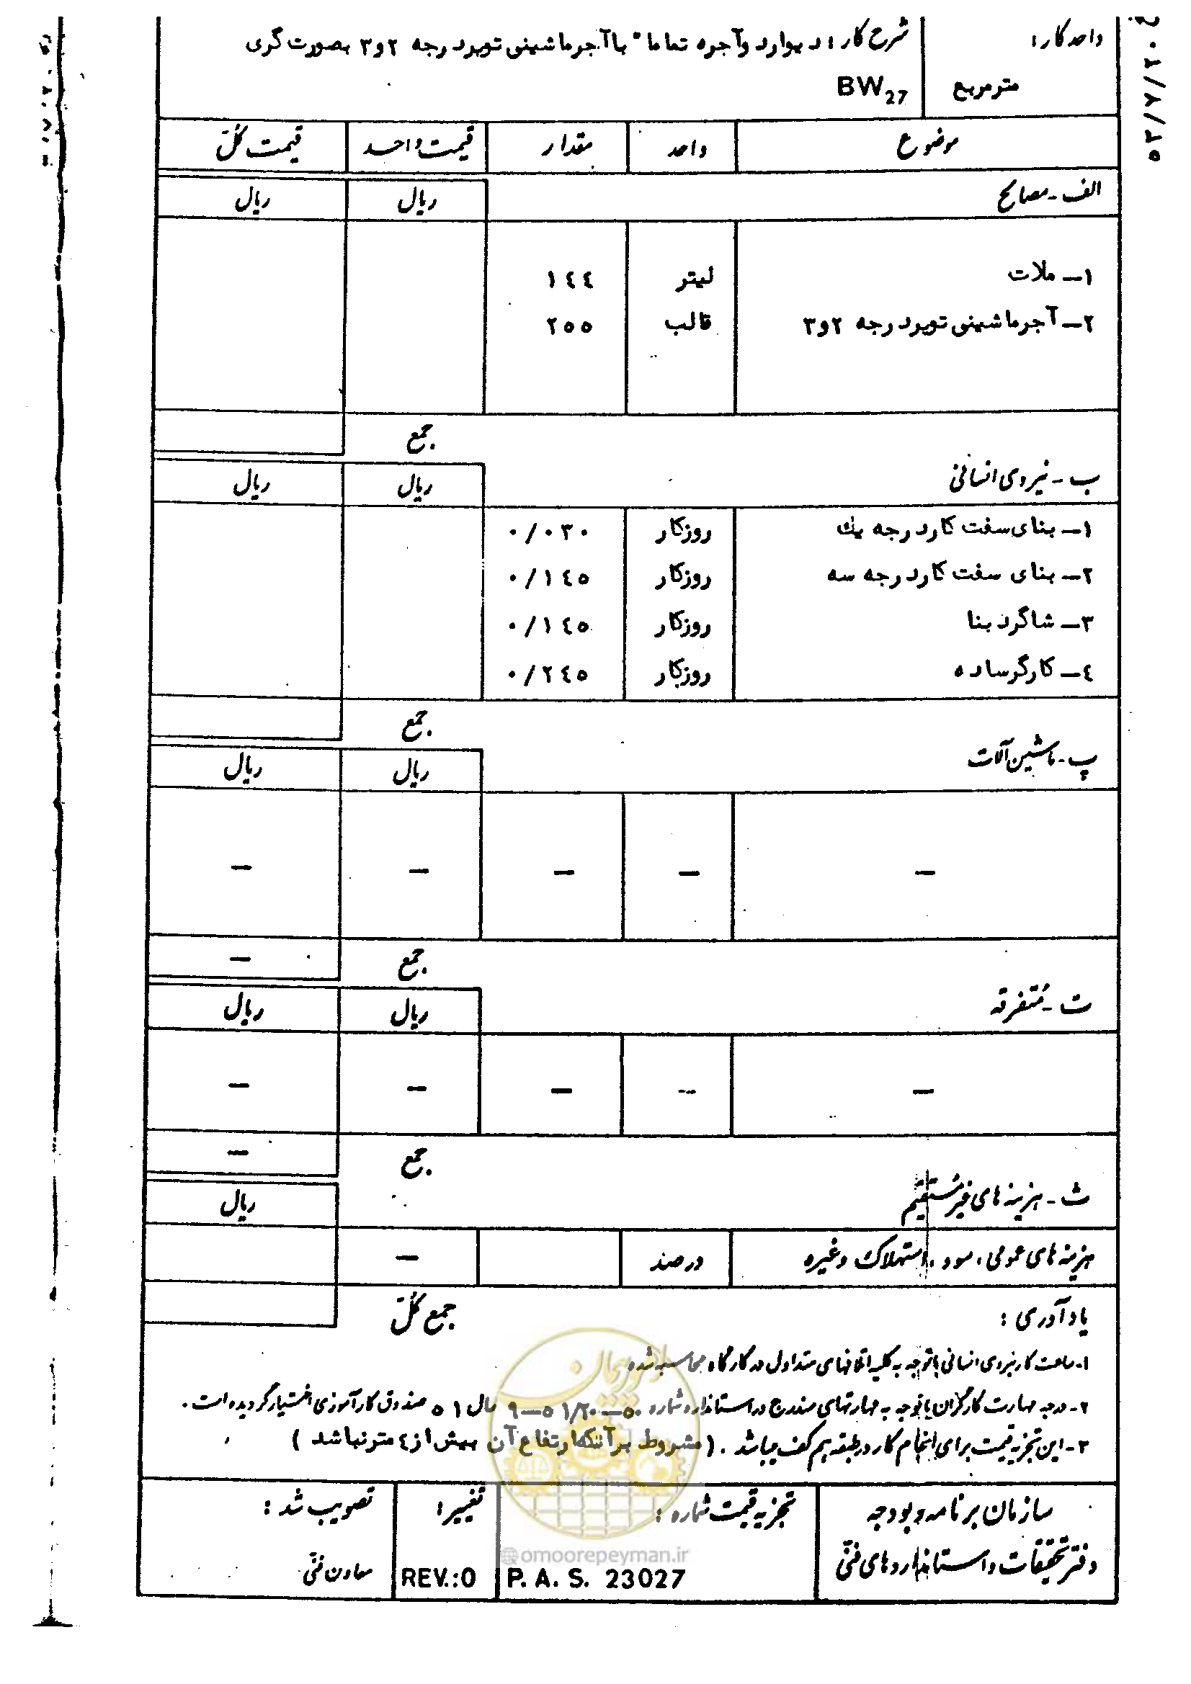 واحد کار:
شرح کار: دیوار دو آجره تماما" با آجر ماشینی توپر درجه ۲و۳ بصورت گری
متر مربع
BW27
موضوع واحد مقدار قیمت واحد قیمت کل
الف - مصالح ریال ریال
۱- ملات لیتر ۱٤٤
۲- آجر ماشینی توپر درجه ۲و۳ قالب ۲۵۵
جمع
ب - نیروی انسانی ریال ریال
۱- بنای سفت کار درجه یك روزکار ۰/۰۳۰
۲- بنای سفت کار درجه سه روزکار ۰/۱٤۵
۳- شاگرد بنا روزکار ۰/۱٤۵
٤- کارگر ساده روزکار ۰/۲٤۵
جمع
پ - ماشین آلات ریال ریال
— — — — —
جمع —
ت - متفرقه ریال ریال
— — — — —
جمع —
ث - هزینه های غیر مستقیم ریال
هزینه های عمومی، سود، استهلاک و غیره درصد —
جمع کل
یادآوری:
۱- ساعت کار نیروی انسانی با توجه به کلیه اتلافهای متداول در کارگاه محاسبه شده
۲- درجه مهارت کارگران با توجه به مهارتهای مندرج در استاندارد شماره ۵۰-۱/۲۰ ۵-۹ سال ۵۱ صندوق کارآموزی اختیار گردیده است.
۳- این تجزیه قیمت برای انجام کار در طبقه هم کف میباشد. (مشروط بر آنکه ارتفاع آن بیش از ٤ متر نباشد)
سازمان برنامه و بودجه
دفتر تحقیقات و استانداردهای فنی
تجزیه قیمت شماره:
P. A. S. 23027
تغییر:
REV.:0
تصویب شد:
معاون فنی
امور پیمان
@omoorepeyman.ir